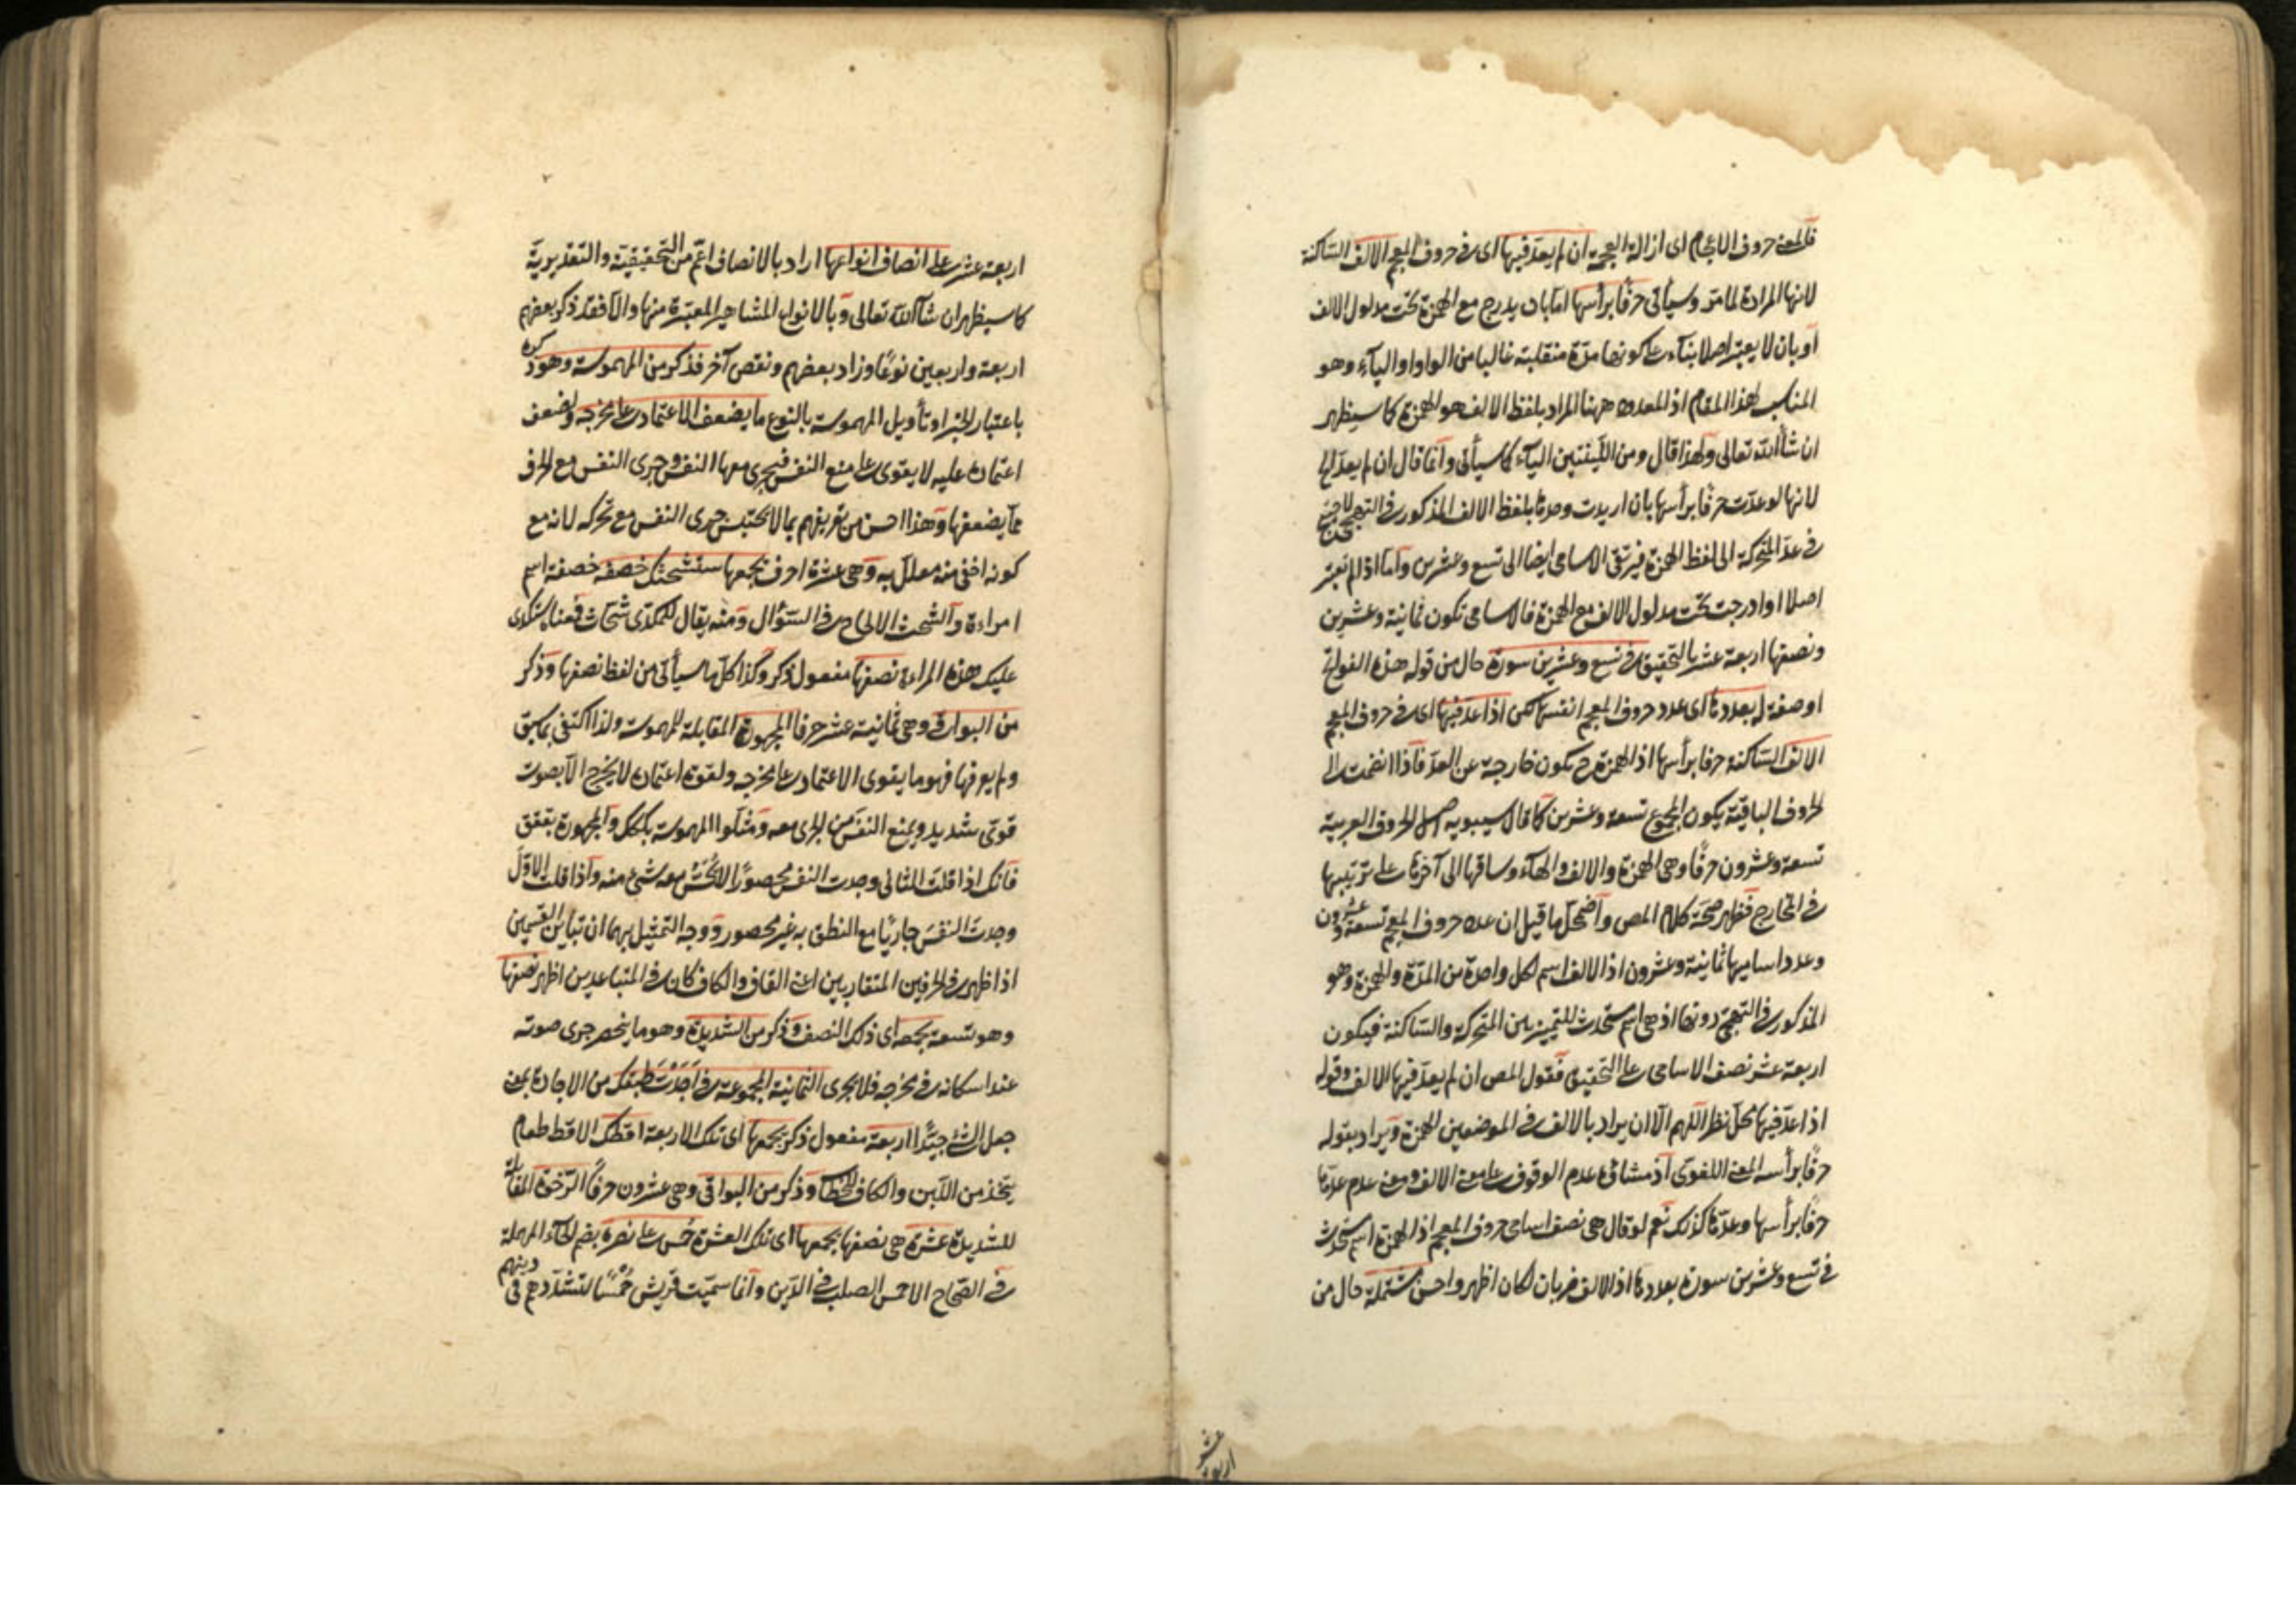 فالمعنى حروف الاعجام اى ازالة العجمة ان لم يعد فيها اى فى حروف المعجم الالف الساكنة
لانها المرادة لما مر وسيأتى حرفا برأسها اما بان يدرج مع الهمزة تحت مدلول الالف
أو بان لا يعتبر اصلا بناء على كونها مدة منقلبة غالبا من الواو او الياء وهو
المناسب لهذا المقام اذ المعدود ههنا المراد بلفظ الالف هو الهمزة كما سيظهر
ان شاء الله تعالى ولهذا قال ومن اللينتين الياء كما سيأتى وانما قال ان لم يعد لها
لانها لو عدت حرفا برأسها بان اريدت وحدها بلفظ الالف المذكور فى التهجى لاحتيج
فى عد المتحركة الى لفظ الهمزة فيرتقى الاسامى ايضا الى تسع وعشرين وأما اذا لم تعتبر
اصلا او ادرجت تحت مدلول الالف مع الهمزة فالاسامى تكون ثمانية وعشرين
ونصفها اربعة عشر بالتحقيق فى تسع وعشرين سورة حال من قوله هذه الفواتح
او صفة له بعددها اى عدد حروف المعجم انفسها لكن اذا عد فيها اى فى حروف المعجم
الالف الساكنة حرفا برأسها اذ الهمزة ح تكون خارجة عن العد فاذا انضمت الى
الحروف الباقية يكون المجموع تسعة وعشرين كما قال سيبويه اصل الحروف العربية
تسعة وعشرون حرفا وهى الهمزة والالف والهاء وساقها الى آخرها على ترتيبها
فى المخارج فظهر صحة كلام المص واضمحل ما قيل ان عدد حروف المعجم تسعة وعشرون
وعدد اساميها ثمانية وعشرون اذ الالف اسم لكل واحدة من المدة والهمزة وهو
المذكور فى التهجى دونها اذ هى اسم مستحدث للتمييز بين المتحركة والساكنة فيكون
اربعة عشر نصف الاسامى على التحقيق فقول المص ان لم يعد فيها الالف وقوله
اذا عد فيها محل نظر اللهم الا ان يراد بالالف فى الموضعين الهمزة ويراد بقوله
حرفا برأسه المعنى اللغوى اذ منشاؤه عدم الوقوف على معنى الالف ومعنى عدم عدها
حرفا برأسها وعدها كذلك نعم لو قال هى نصف اسامى حروف المعجم اذ الهمزة اسم مستحدث
فى تسع وعشرين سورة بعددها اذ الالف ضربان لكان اظهر واحسن مشتملة حال من
اربعة عشر
اربعة عشر على انصاف انواعها اراد بالانصاف اعم من التحقيقية والتقديرية
كما سيظهر ان شاء الله تعالى وبالانواع المشاهير المعتبرة منها والا فقد ذكر بعضهم
اربعة واربعين نوعا وزاد بعضهم ونقص آخر فذكر من المهموسة وهو ذكره
باعتبار الخبر او تأويل المهموسة بالنوع ما يضعف الاعتماد على مخرجه ولضعف
اعتماده عليه لا يقوى على منع النفس فيجرى معها النفس وجرى النفس مع الحرف
مما يضعفها وهذا احسن من تعريفهم بما لا يحتبس جرى النفس مع تحركه لانه مع
كونه اخفى منه معلل به وهى عشرة احرف يجمعها ستشحثك خصفه خصفة اسم
امراءة والشحث الالحاح فى السؤال ومنه يقال للمكدى شحاث فمعناه ستكدى
عليك هذه المراءة نصفها مفعول ذكر وكذا كل ما سيأتى من لفظ نصفها وذكر
من البواقى وهى ثمانية عشر حرفا المجهورة المقابلة للمهموسة ولذا اكتفى بما سبق
ولم يعرفها فهو ما يقوى الاعتماد على مخرجه ولقوة اعتماده لا يخرج الا بصوت
قوى شديد ويمنع النفس من الجرى معه ومثلوا المهموسة بككك والمجهورة بققق
فانك اذا قلت الثانى وجدت النفس محصورا لا تحس معه شئ منه واذا قلت الاول
وجدت النفس جاريا مع النطق به غير محصور ووجه التمثيل بهما ان تباين القسمين
اذا ظهر فى الحرفين المتقاربين اعنى القاف والكاف كان فى المتباعدين اظهر نصفها
وهو تسعة يجمعه اى ذلك النصف وذكر من الشديدة وهو ما ينحصر جرى صوته
عند اسكانه فى مخرجه فلا يجرى الثمانية المجموعة فى اجدت طبقك من الاجادة بمعنى
جعل الشئ جيدا اربعة مفعول ذكر يجمعها اى تلك الاربعة اقطك الاقط طعام
يتخذ من اللبن والكاف للخطاب وذكر من البواقى وهى عشرون حرفا الرخوة المقابلة
للشديدة عشرة هى نصفها يجمعها اى تلك العشرة حمس على نصره بضم الحاء المهملة
فى الصحاح الاحمس الصلب فى الدين وانما سميت قريش حمسا لتشددهم فى دينهم